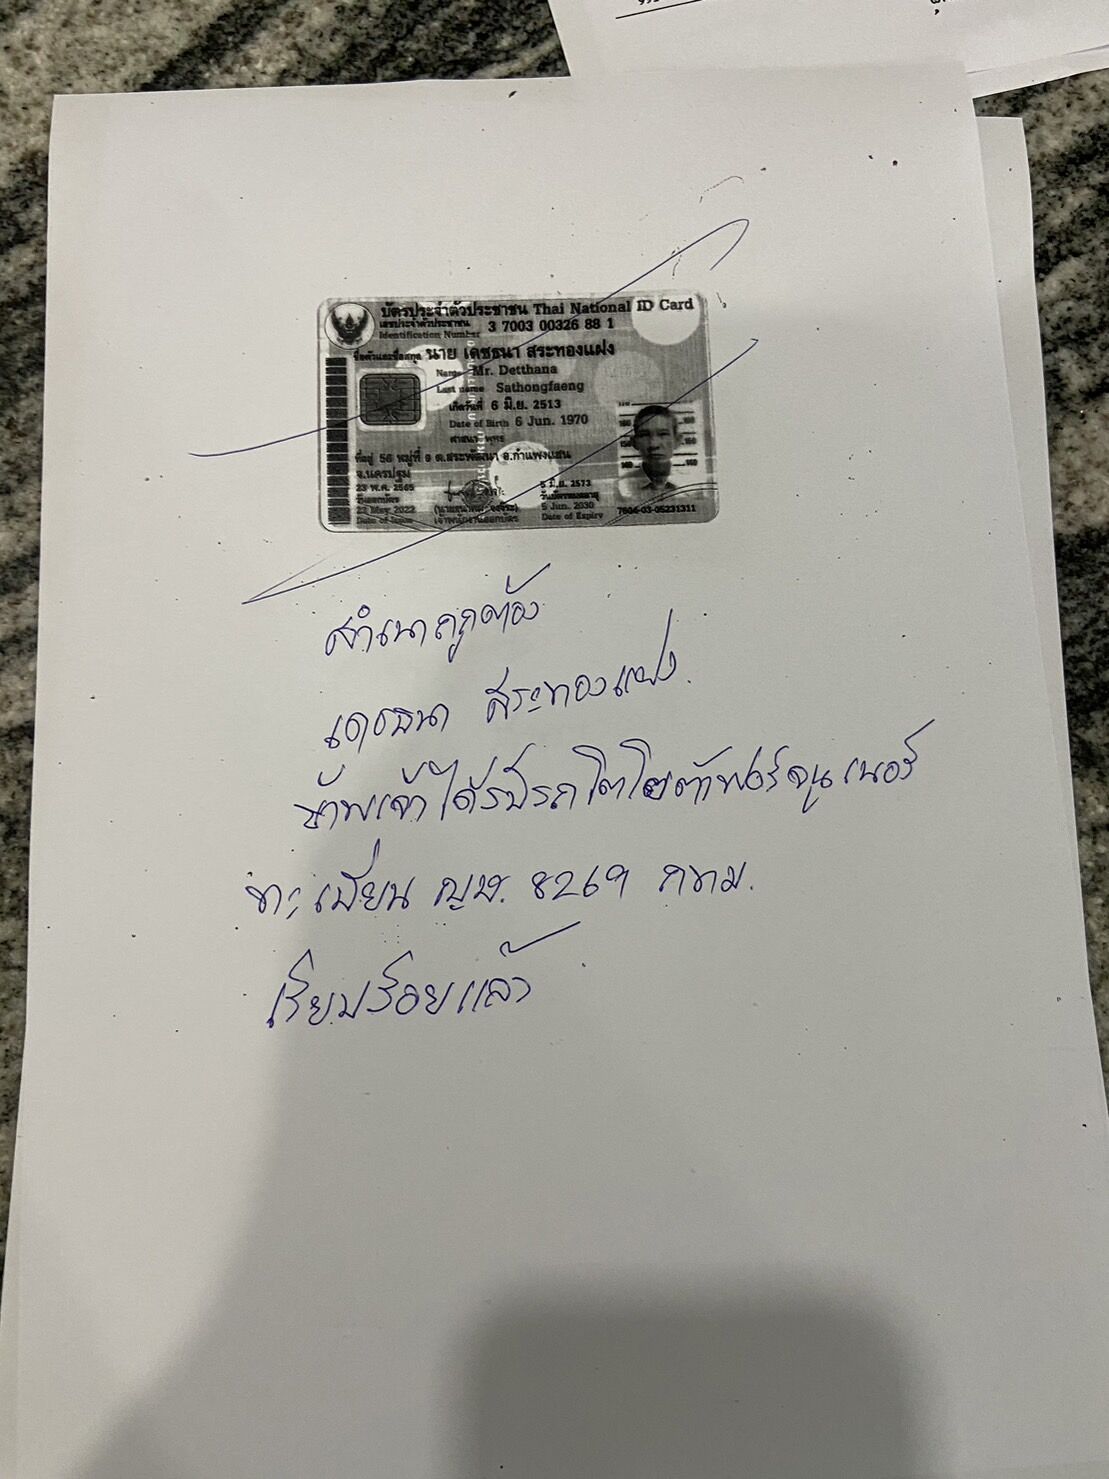 บัตรประจำตัวประชาชน Thai National ID Card
เลขประจำตัวประชาชน
Identification Number
3 7003 00326 88 1
ชื่อตัวและชื่อสกุล นาย เดชธนา สระทองแฝง
Name Mr. Detthana
Last name Sathongfaeng
เกิดวันที่ 6 มิ.ย. 2513
Date of Birth 6 Jun. 1970
ศาสนา พุทธ
ที่อยู่ 56 หมู่ที่ 9 ต.สระพัฒนา อ.กำแพงแสน
จ.นครปฐม
23 พ.ค. 2565
วันออกบัตร
23 May 2022
Date of Issue
เจ้าพนักงานออกบัตร
5 มิ.ย. 2573
วันบัตรหมดอายุ
5 Jun. 2030
Date of Expiry
7606-03-05231311
สำเนาถูกต้อง
เดชธนา สระทองแฝง
ข้าพเจ้าได้รับรถโตโยต้าฟอร์จูนเนอร์
ทะเบียน ญษ. 8269 กทม.
เรียบร้อยแล้ว